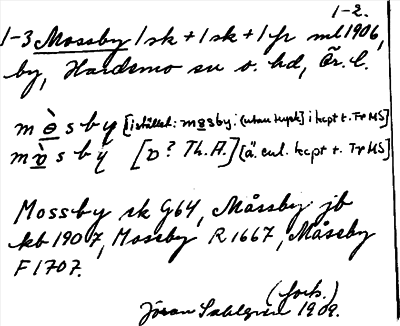 1-2.
1-3 Mossby 1 sk + 1 sk + 1 fr ml 1906,
by, Hardemo sn o. hd, Ör. l.
mɵ̀sby [istället: mɵsby. (utan tryck) i kcpt t. Tr HS]
mʋ̀sbý [ʋ? Th. A.] (ä. enl. kcpt t. Tr HS]
Mossby sk G64, Måssby jb
kb 1907, Mossby R 1667, Måssby
F 1707.
(forts.)
Jöran Sahlgren 1909.